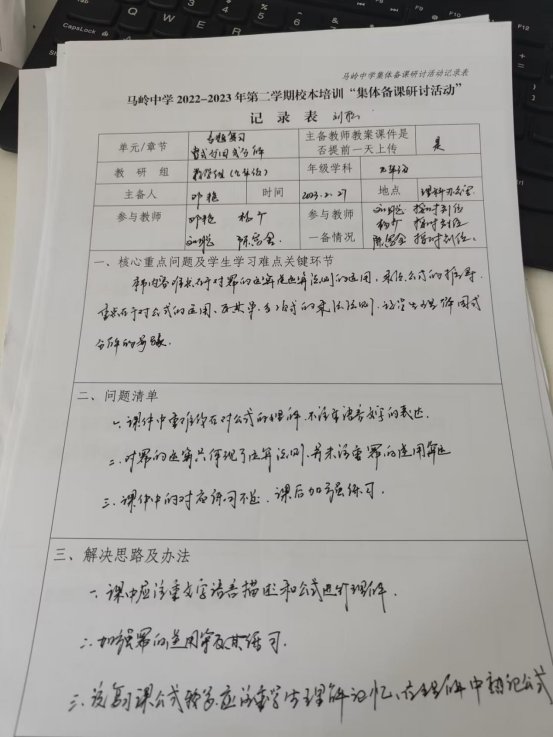 马岭中学集体备课研讨活动记录表
马岭中学 2022-2023 年第二学期校本培训“集体备课研讨活动”
记 录 表
单元/章节 专题复习
整式与因式分解
主备教师教案课件是否提前一天上传 是
教 研 组 数学组(九年级) 年级学科 九年级
主备人 邓艳 时间 2023.2.27 地点 理科办公室
参与教师 邓艳 杨
参与教师一备情况 按时到位
按时到位
按时到位
一、核心重点问题及学生学习难点关键环节
本节内容难点在于对幂的运算及运算法则的运用、乘法公式的推导.
重点在于对公式的运用、及其单、多项式的乘法法则,
分解的
二、问题清单
一、课件中重难点在对公式的理解,不注重语言文字的表达.
二、对幂的运算只体现了运算法则,并未注重幂的逆用
三、课件中的对应练习不足,课后加强练习.
三、解决思路及办法
一、课中应注重文字语言描述和公式进行理解.
二、加强幂的逆用 及其练习.
三、该复习课公式较多,应注重学生理解记忆、在理解中熟记公式